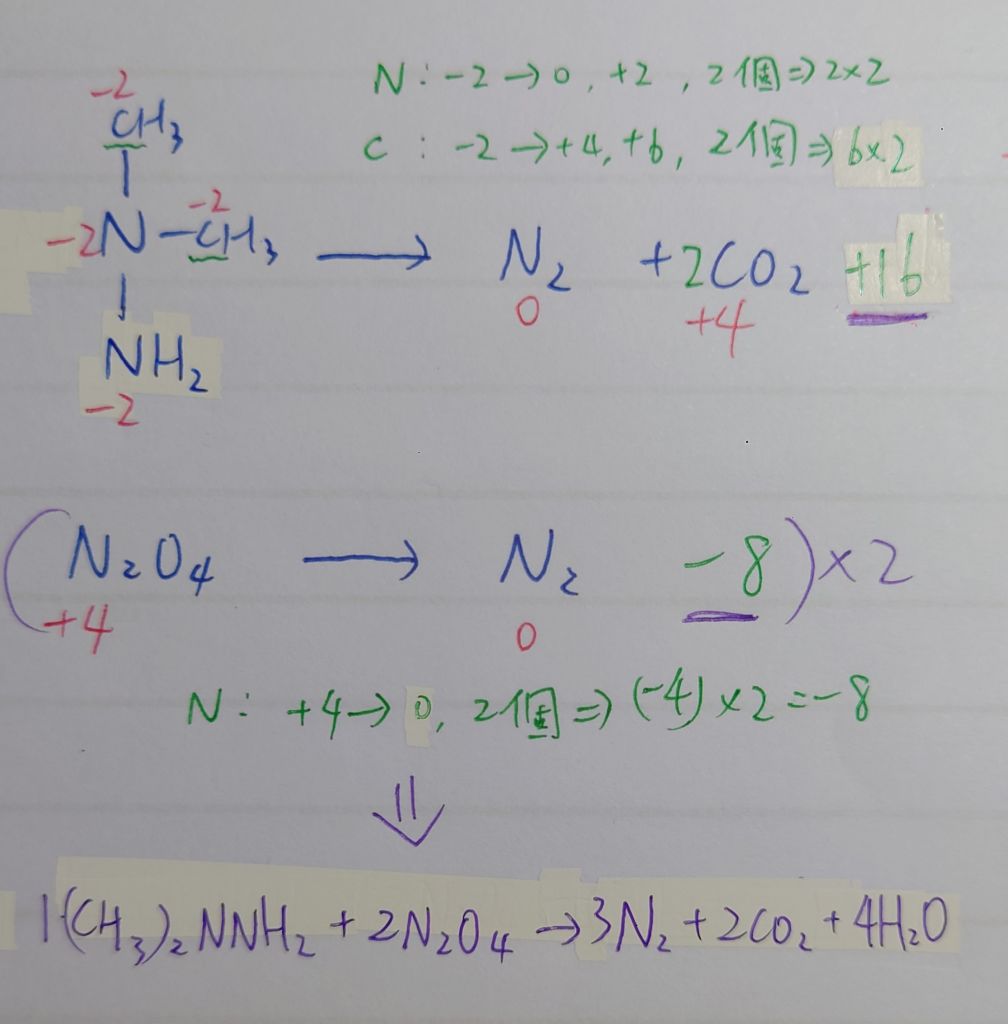 N: -2 → 0, +2, 2個 ⇒ 2×2
C: -2 → +4, +6, 2個 ⇒ 6×2
-2
CH₃
-2
-2N-CH₃ → N₂ + 2CO₂ +16
0 +4
NH₂
-2
(N₂O₄ → N₂ -8)×2
+4 0
N: +4 → 0, 2個 ⇒ (-4)×2=-8
⇓
1(CH₃)₂NNH₂ + 2N₂O₄ → 3N₂ + 2CO₂ + 4H₂O